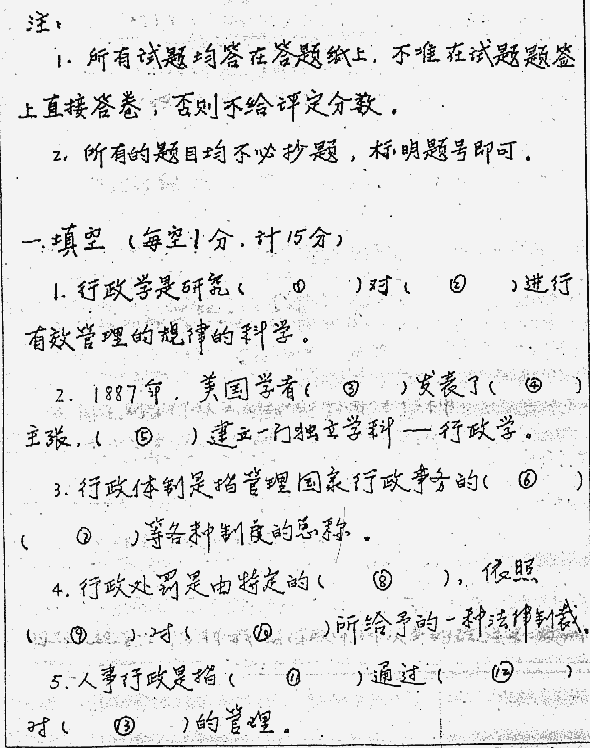 注：
1. 所有试题均答在答题纸上，不准在试题题签
上直接答卷，否则不给评定分数。
2. 所有的题目均不必抄题，标明题号即可。
一.填空（每空1分.计15分）
1. 行政学是研究（ ① ）对（ ② ）进行
有效管理的规律的科学。
2. 1887年，美国学者（ ③ ）发表了（ ④ ）
主张，（ ⑤ ）建立一门独立学科——行政学。
3. 行政体制是指管理国家行政事务的（ ⑥ ）
（ ⑦ ）等各种制度的总称。
4. 行政处罚是由特定的（ ⑧ ），依照
（ ⑨ ）对（ ⑩ ）所给予的一种法律制裁。
5. 人事行政是指（ ⑪ ）通过（ ⑫ ）
对（ ⑬ ）的管理。